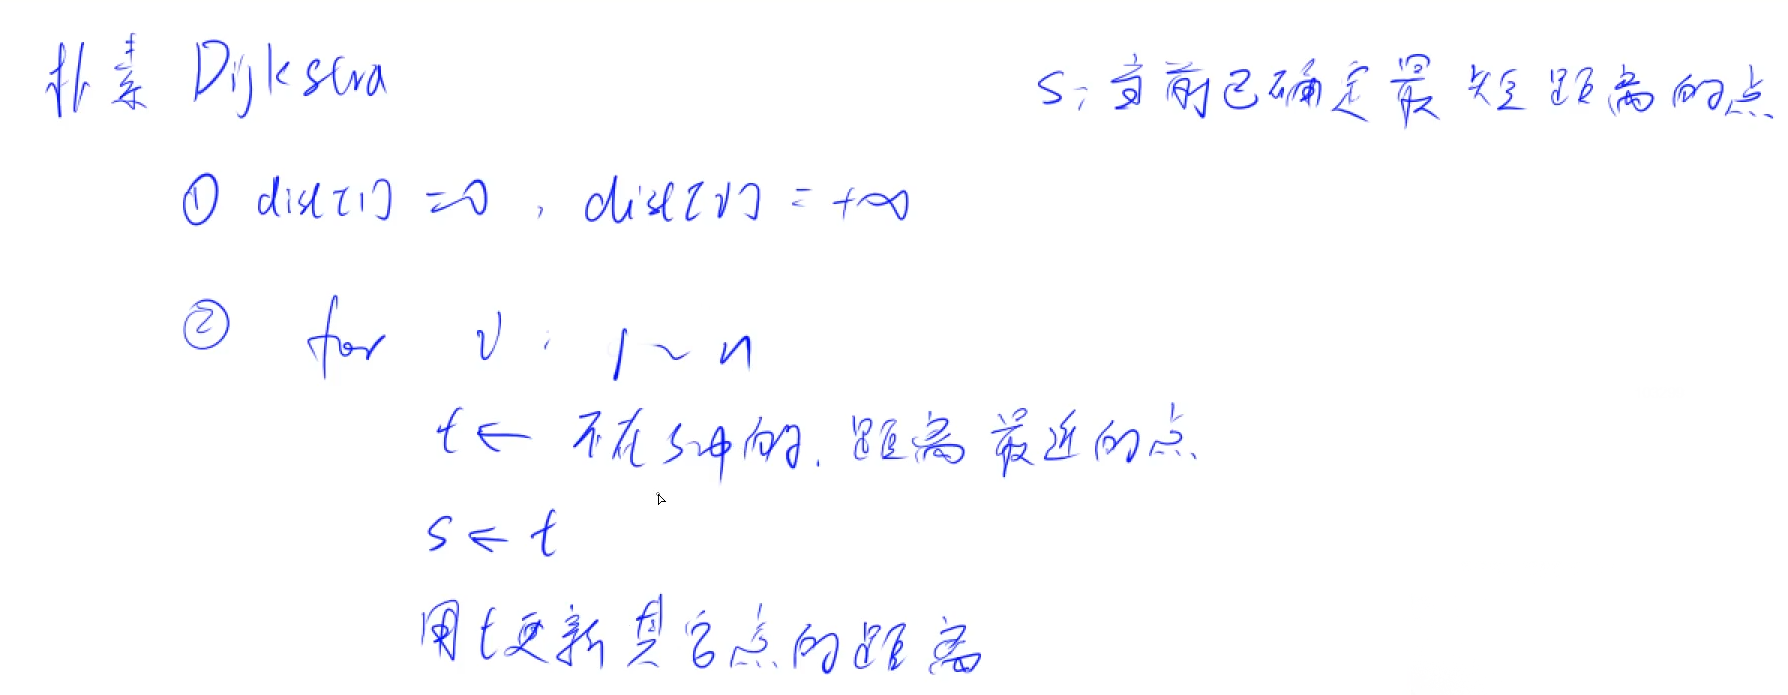 朴素 Dijkstra
s: 当前已确定最短距离的点
① dist[1] = 0, dist[i] = +∞
② for i: 1 ~ n
t ← 不在s中的, 距离最近的点
s ← t
用t更新其它点的距离